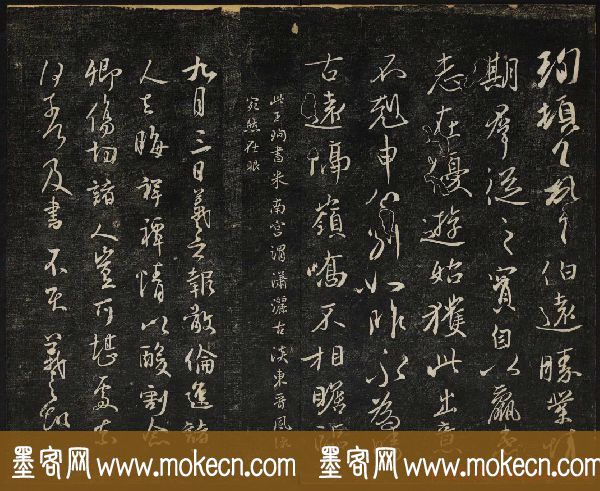 珣頓首頓首伯遠勝業情
期羣從之寶自以羸患
志在優遊始獲此出意
不剋申分別如昨永為疇
古遠隔嶺嶠不相瞻臨
此王珣書米南宮謂瀟灑古淡東晉風流
宛然在眼
九月三日羲之報敬倫遮諸
人去晦祥禫情以酸割念
卿傷切諸人豈可堪處奈
何奈何及書不既羲之報
墨客网 www.mokecn.com 墨客网 www.mokecn.com